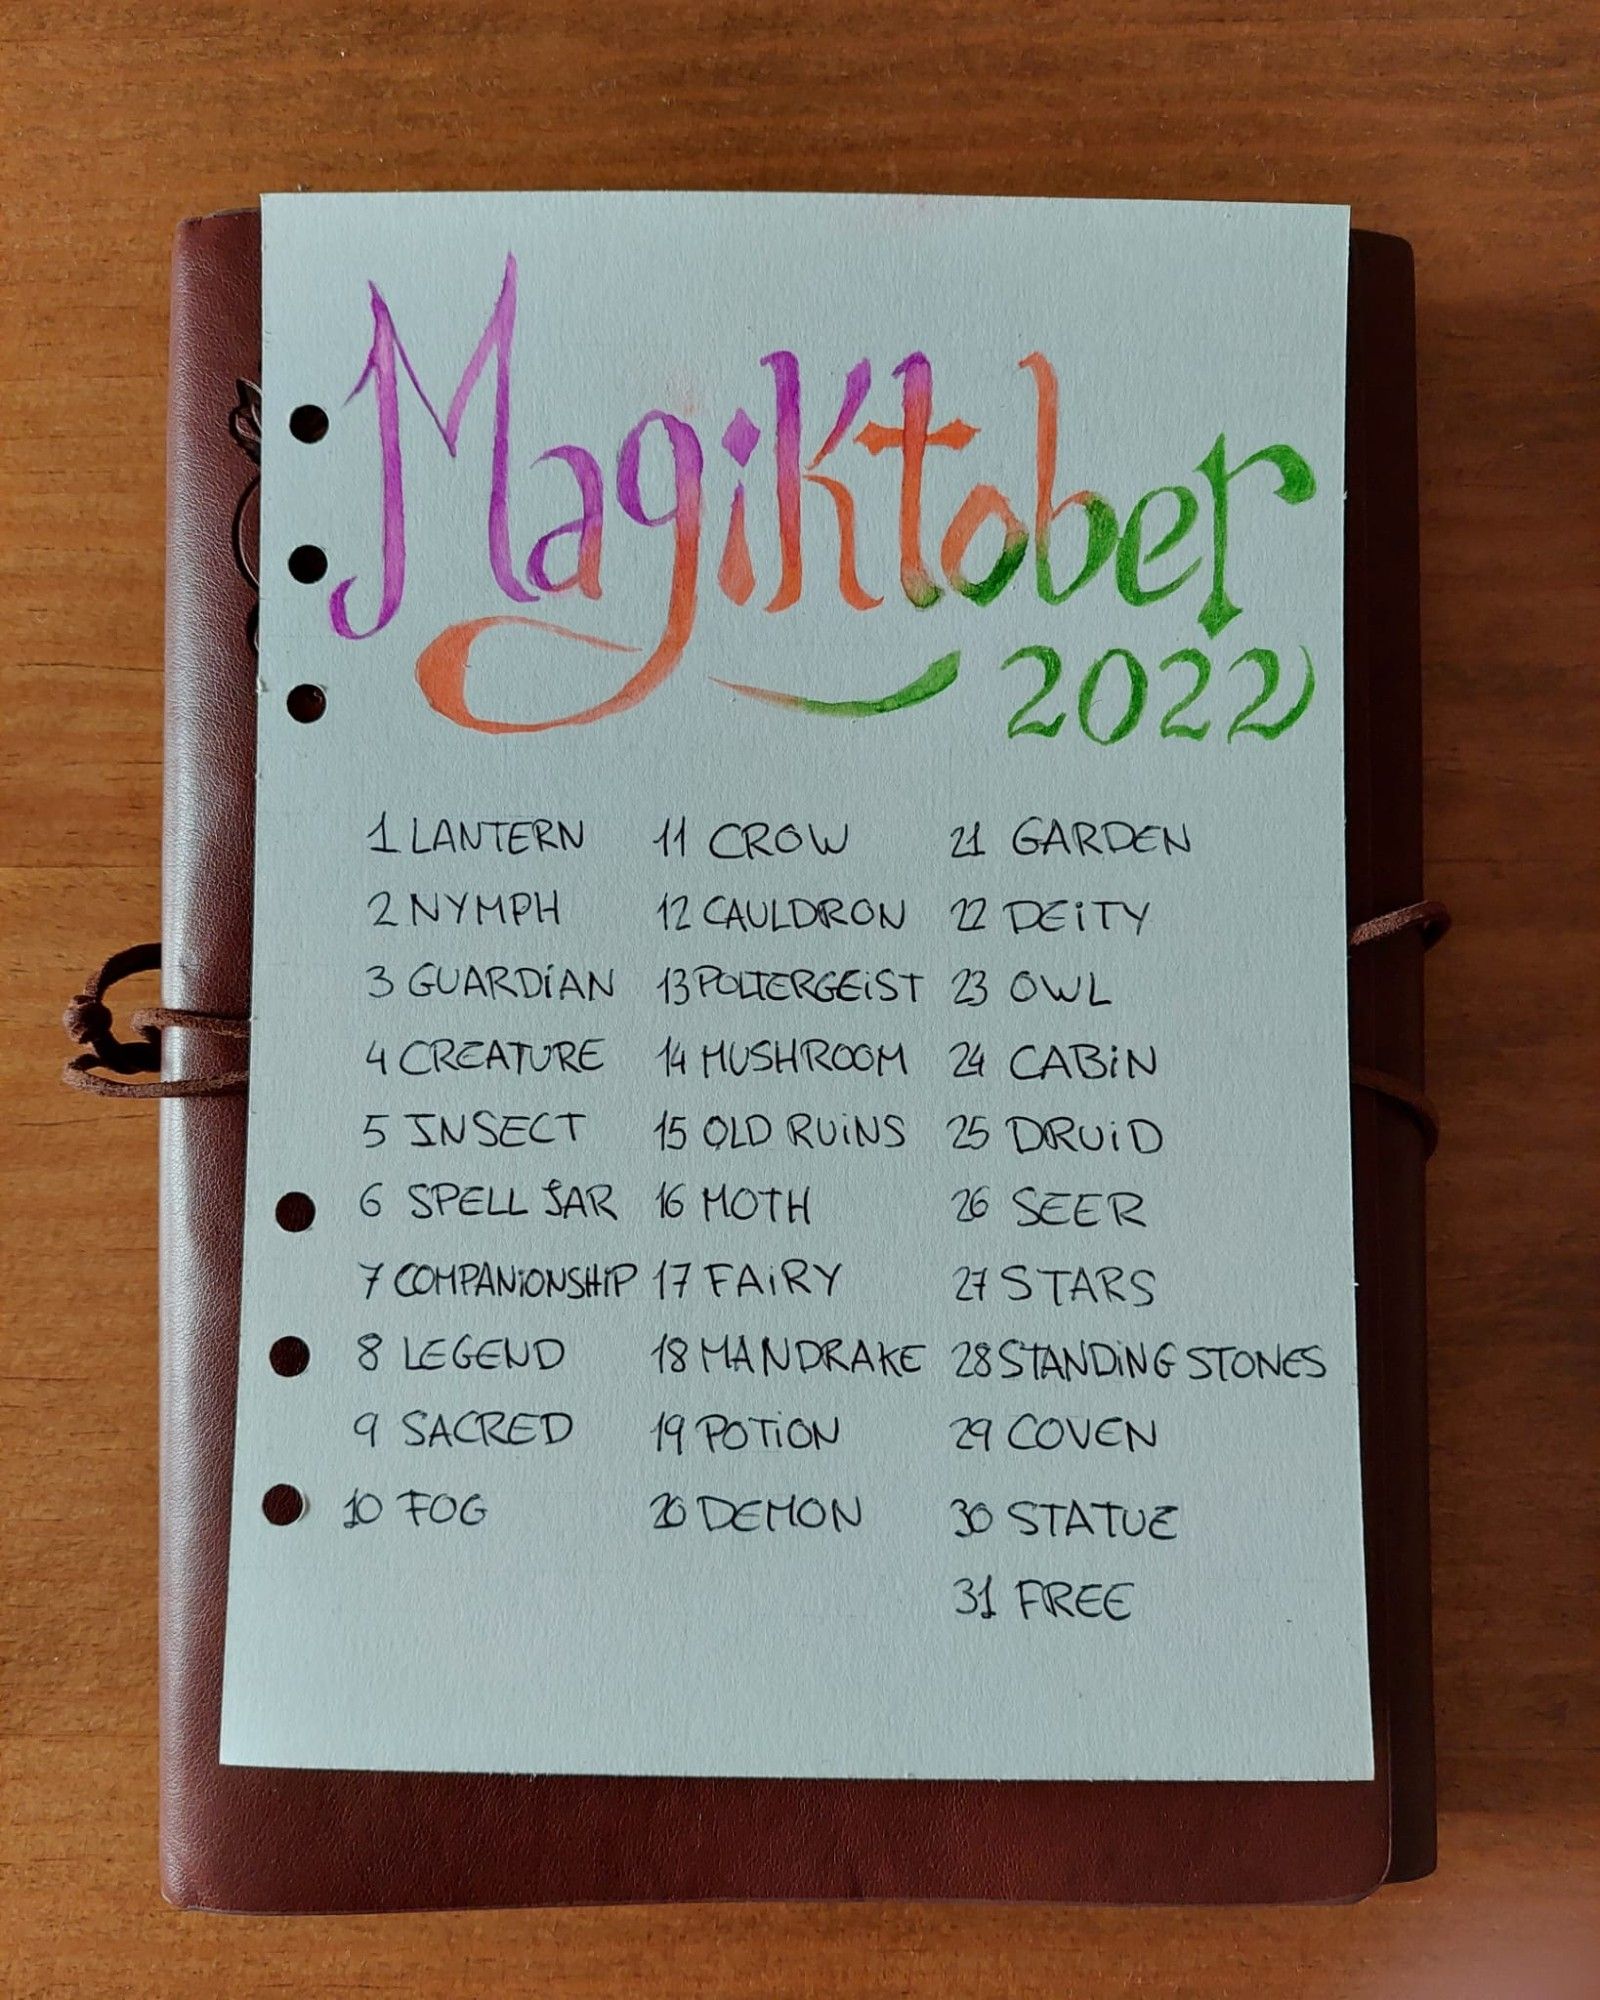 Magiktober
2022
1 LANTERN
2 NYMPH
3 GUARDiAN
4 CREATURE
5 INSECT
6 SPELL JAR
7 COMPANiONSHiP
8 LEGEND
9 SACRED
10 FOG
11 CROW
12 CAULDRON
13 POLTERGEiST
14 MUSHROOM
15 OLD RUiNS
16 MOTH
17 FAiRY
18 MANDRAKE
19 POTiON
20 DEMON
21 GARDEN
22 DEiTY
23 OWL
24 CABiN
25 DRUiD
26 SEER
27 STARS
28 STANDiNG STONES
29 COVEN
30 STATUE
31 FREE